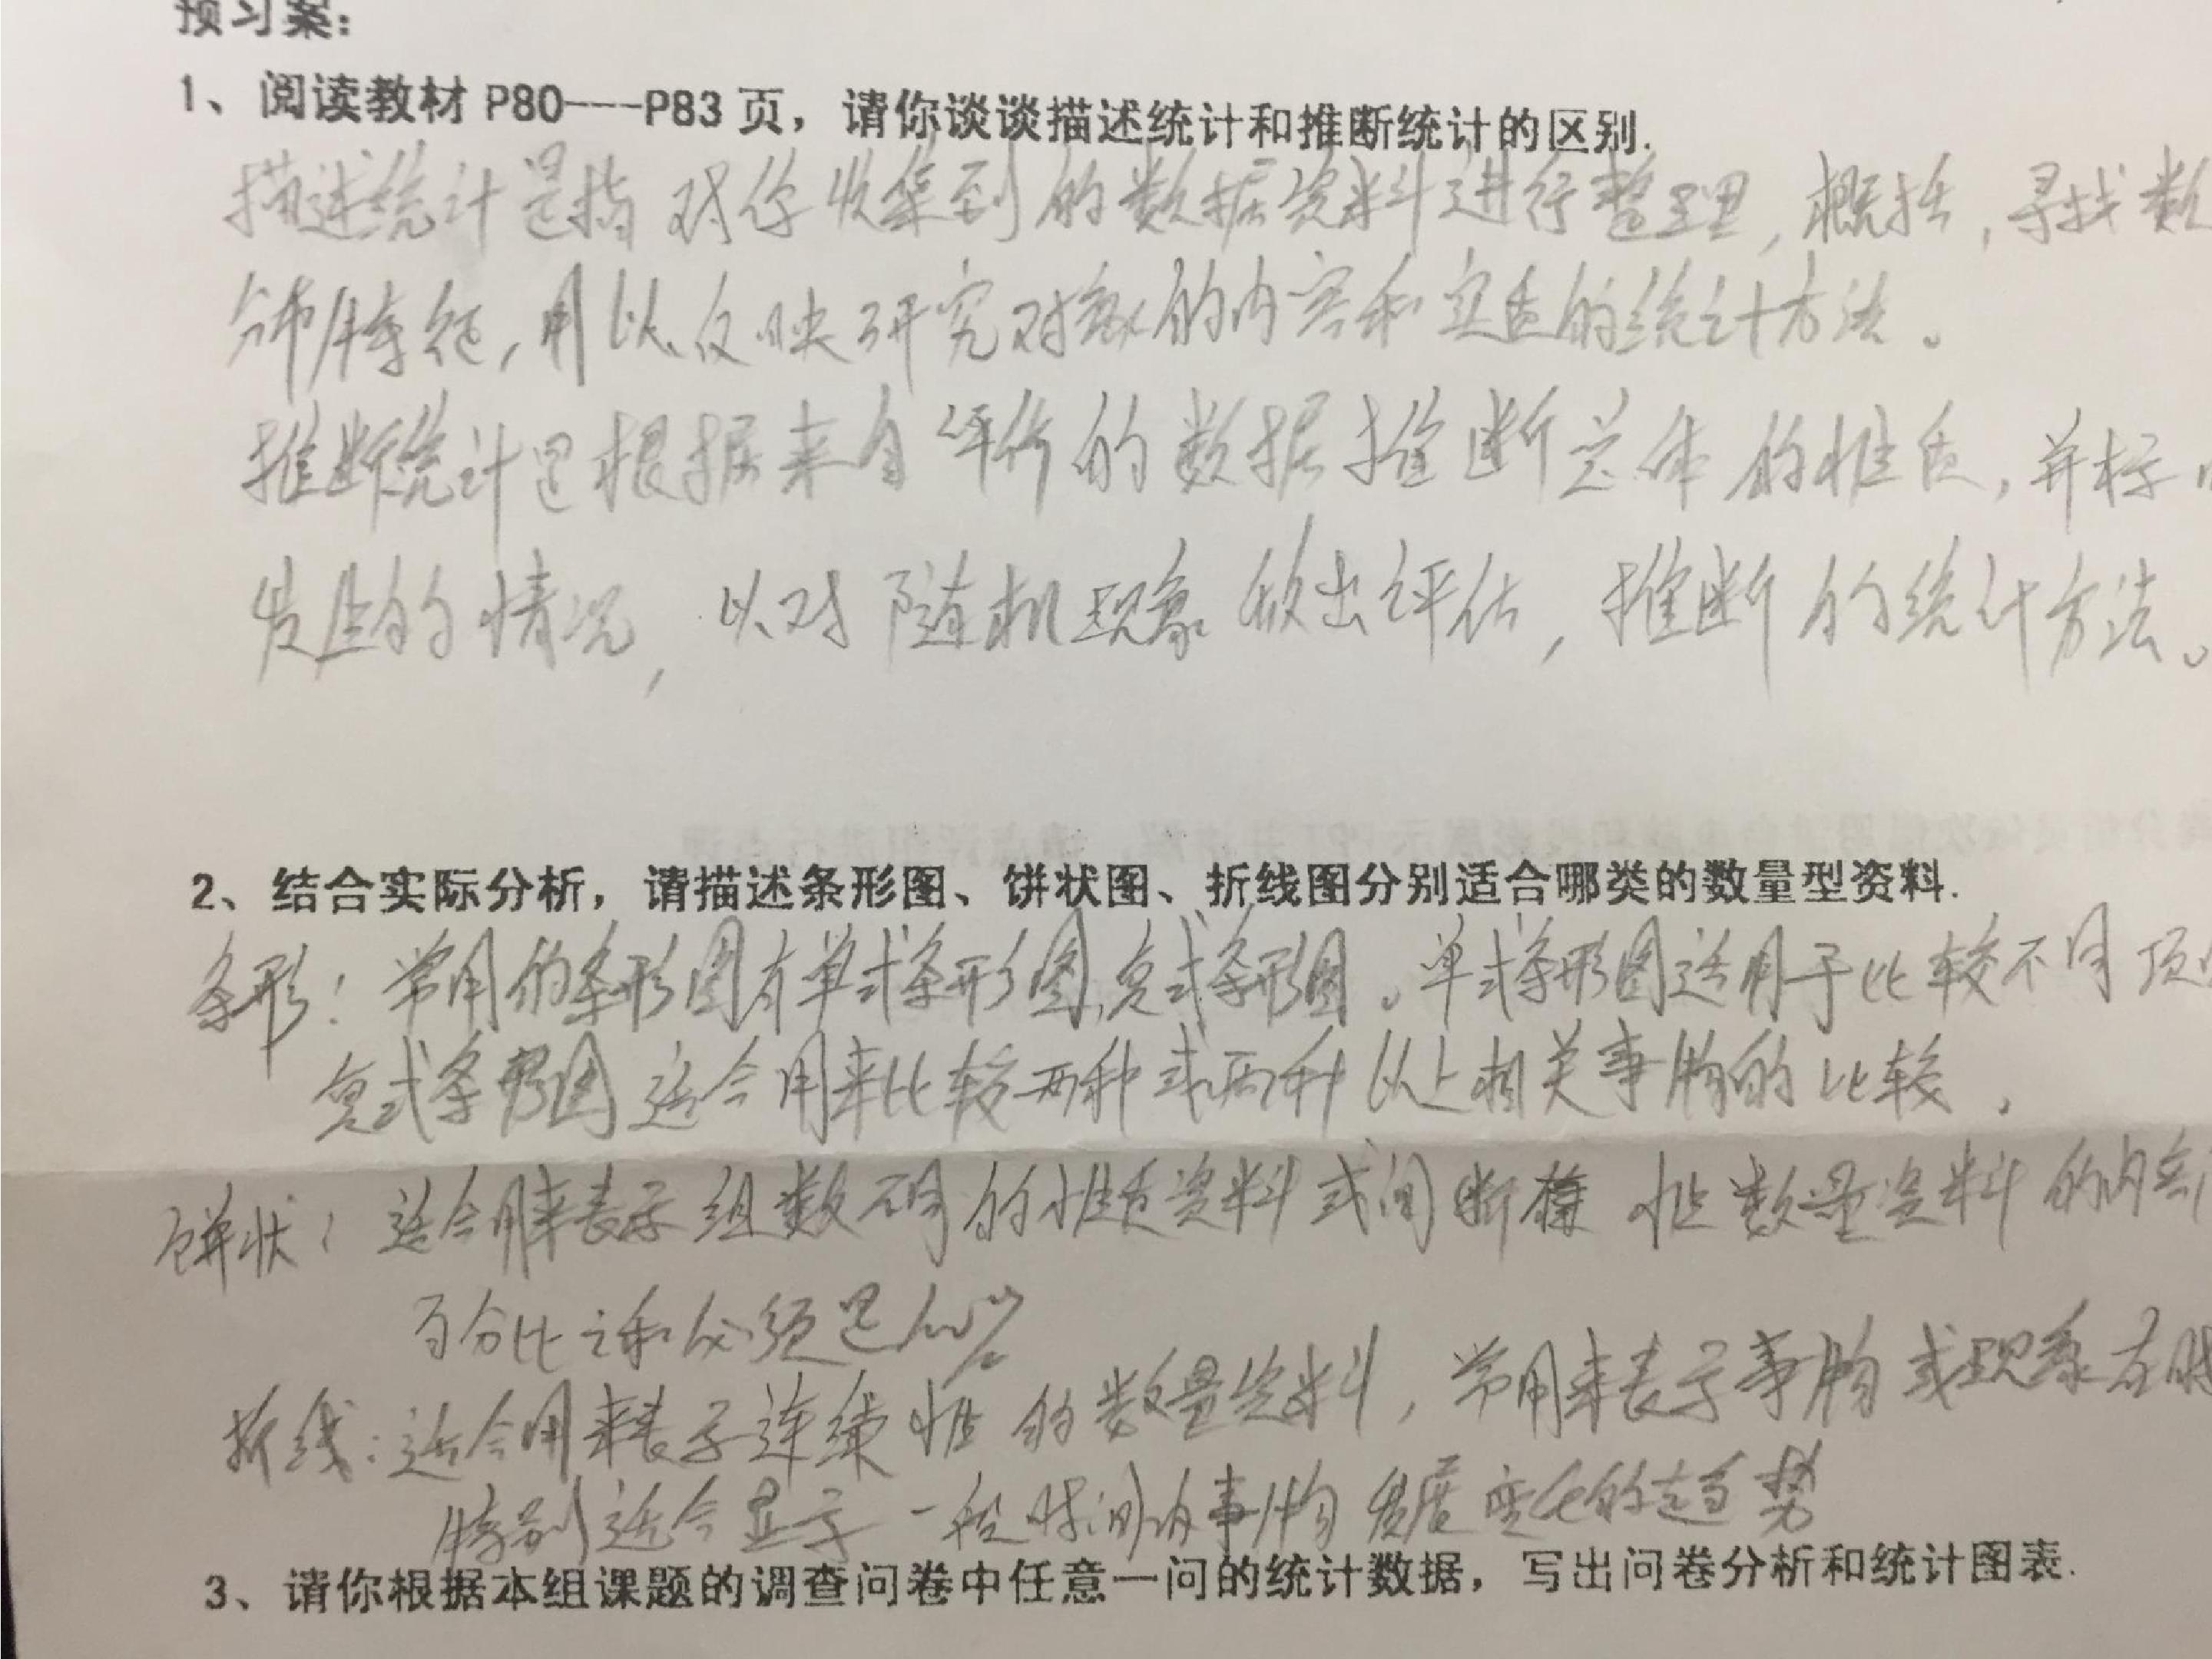 预习案：
1、阅读教材 P80---P83 页，请你谈谈描述统计和推断统计的区别.
描述统计是指对你收集到的数据资料进行整理，概括，寻找数
分布特征，用以反映研究对象的内容和实质的统计方法。
推断统计是根据来自的数据推断总体的性质，并标
发生的情况，以对随机现象做出评估，推断的统计方法。
2、结合实际分析，请描述条形图、饼状图、折线图分别适合哪类的数量型资料.
条形：常用的条形图有单式条形图,复式条形图。单式条形图适用于比较不同项
复式条形图适合用来比较两种或两种以上相关事物的比较.
饼状：适合用来表示组数不同的性质资料或间断性数量资料的内
百分比之和必须是100%
折线：适合用来表示连续性的数量资料，常用来表示事物或现象在时
特别适合显示一段时间内事物发展变化的趋势
3、请你根据本组课题的调查问卷中任意一问的统计数据，写出问卷分析和统计图表.